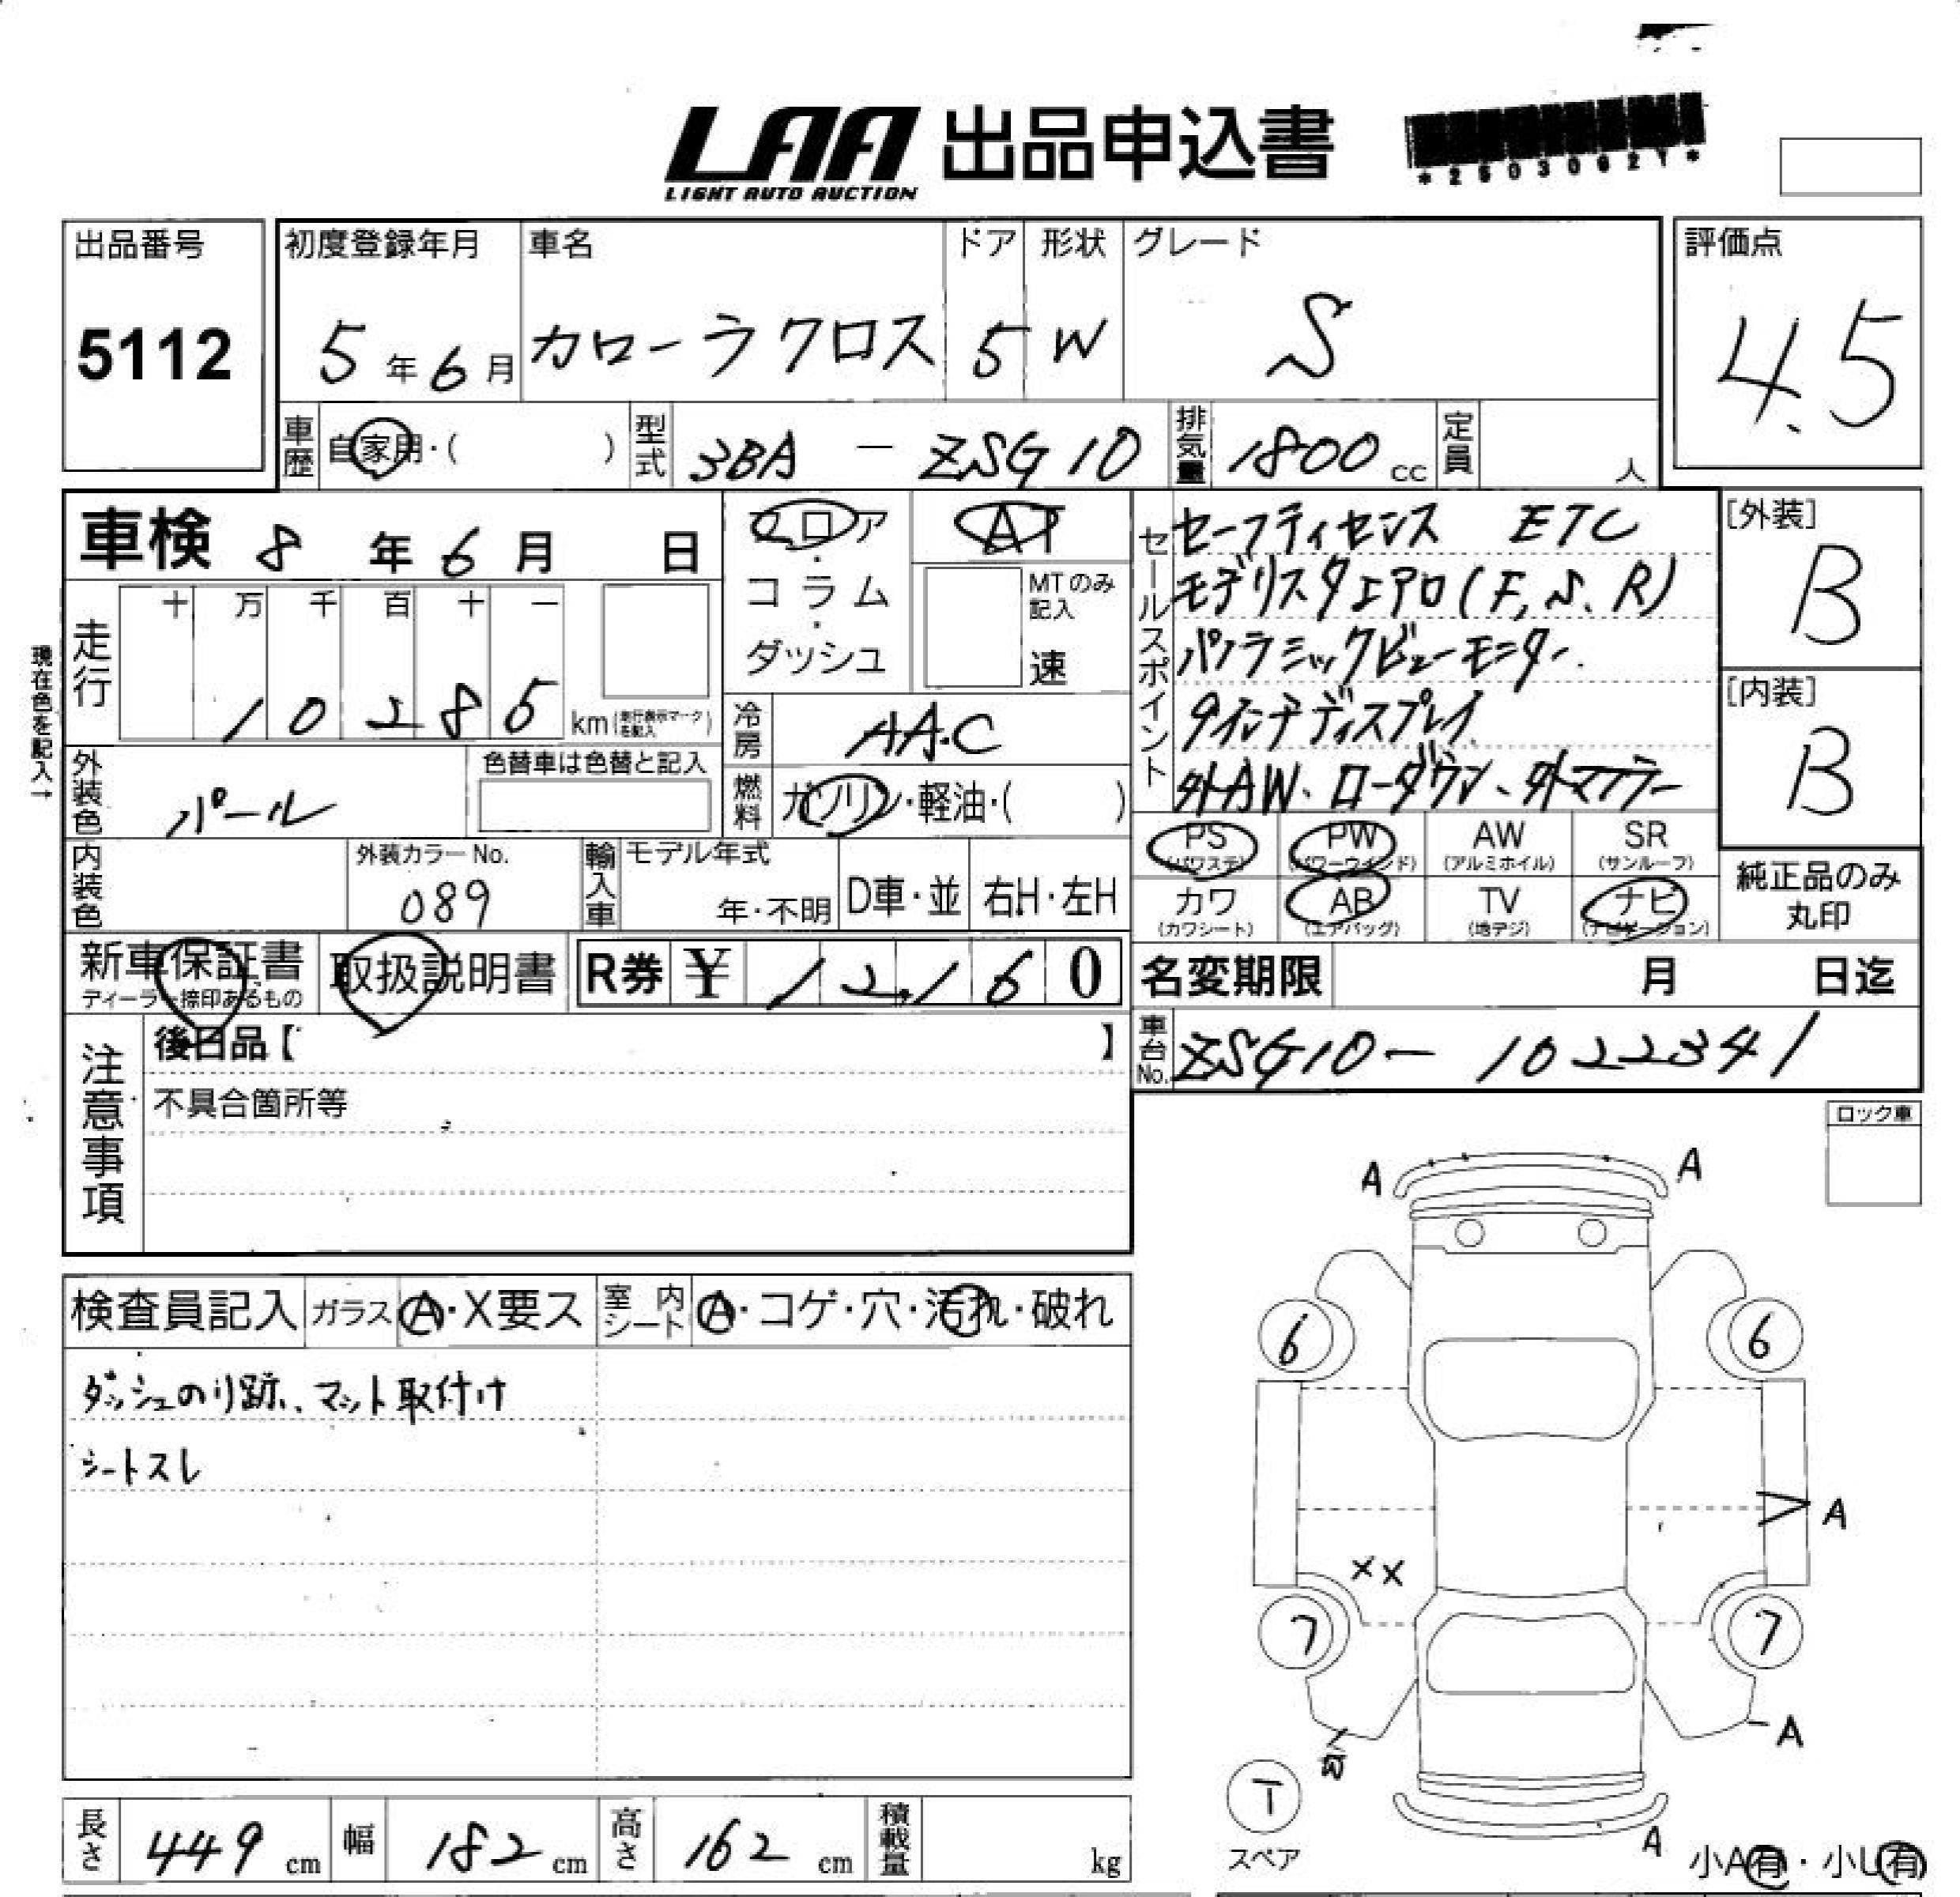 LAA 出品申込書
LIGHT AUTO AUCTION
出品番号
5112
初度登録年月
5年6月
車名
カローラクロス
ドア
5
形状
W
グレード
S
評価点
4.5
車歴 自家用・( )
型式 3BA - ZSG10
排気量 1800 cc
定員 人
車検 8年6月 日
フロア・コラム・ダッシュ
AT
MTのみ記入
速
セールスポイント
セーフティセンス ETC
モデリスタエアロ(F, S, R)
パノラミックビューモニター.
9インチディスプレイ
外AW、ローダウン、外マフラー
[外装]
B
[内装]
B
現在色を記入→
走行
十 万 千 百 十 一
10285 km(走行表示マークを記入)
冷房 AAC
燃料 ガソリン・軽油・( )
外装色 パール
色替車は色替と記入
内装色
外装カラーNo.
089
輸入車
モデル年式
年・不明
D車・並
右H・左H
PS (パワステ)
PW (パワーウインド)
AW (アルミホイル)
SR (サンルーフ)
カワ (カワシート)
AB (エアバッグ)
TV (地デジ)
ナビ (ナビゲーション)
純正品のみ
丸印
新車保証書
ディーラー捺印あるもの
取扱説明書
R券 ¥ 12,160
名変期限 月 日迄
車台No. ZSG10-1022341
注意事項
後日品【 】
不具合箇所等
ロック車
検査員記入
ガラス A・X要ス
室内シート A・コゲ・穴・汚れ・破れ
ダッシュのり跡、マット取付け
シートスレ
A
A
6
6
A
XX
7
7
A
T
スペア
A
小A有・小U有
長さ 449 cm
幅 182 cm
高さ 162 cm
積載量 kg